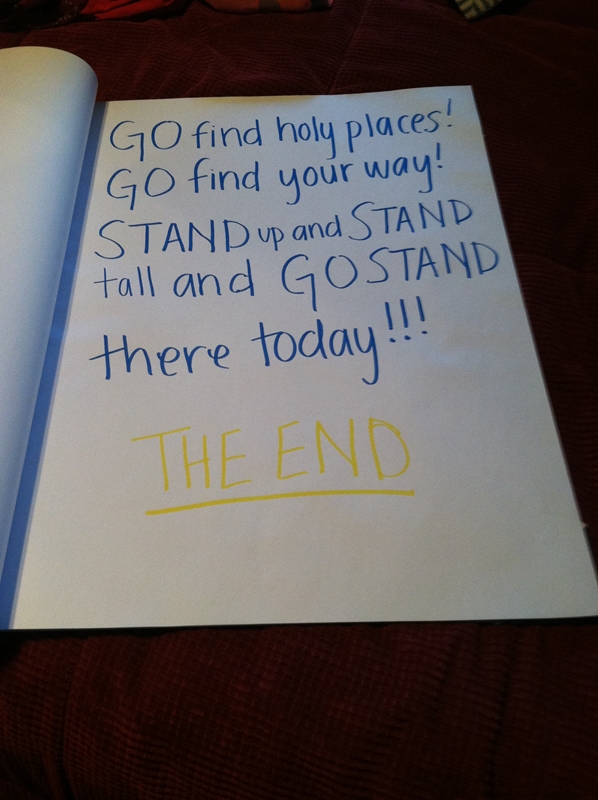 GO find holy places!
GO find your way!
STAND up and STAND
tall and GO STAND
there today!!!
THE END